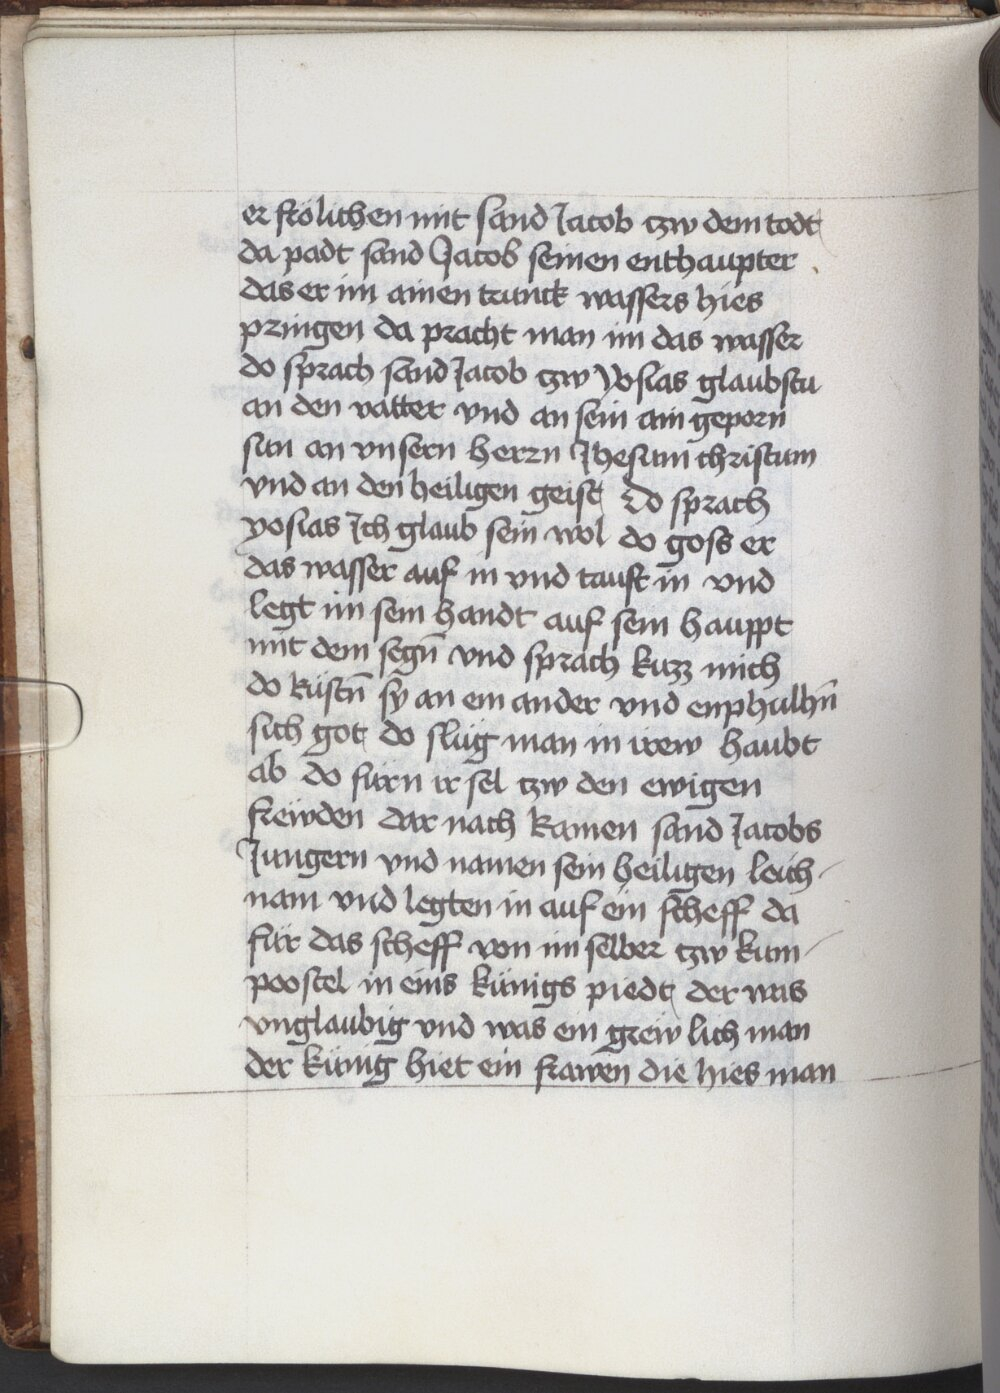 er frölichen mit sand Jacob tzw dem todt
da padt sand Jacob seinen enthaupter
das er im ainen trunck wassers hies
pringen da pracht man im das wasser
do sprach sand Jacob tzw Yosias glaubstu
an den vatter vnd an sein ain geporn
sun an vnsern herrn Jhesum christum
vnd an den heiligen geist Do sprach
yosias Ich glaub sein wol do goss er
das wasser auf in vnd tauft in vnd
legt im sein handt auf sein hauppt
mit dem segn̄ vnd sprach kuzz mich
do küstn̄ sy an ein ander vnd enphulhn̄
sich got do slüg man in irew haubt
ab do fürn ir sel tzw den ewigen
frewden dar nach kamen sand Jacobs
Jungern vnd namen sein heiligen leich-
nam vnd legten in auf ein scheff da
für das scheff von im selber tzw kum-
postel in eins künigs piedt der was
vnglaubig vnd was ein grewlich man
der künig hiet ein frawen die hies man